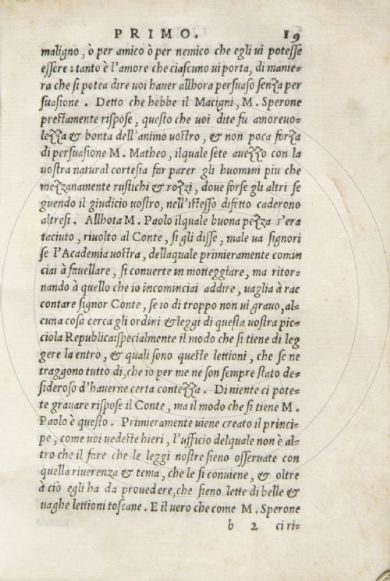 PRIMO. 19
maligno, ò per amico ò per nemico che egli ui potesse
essere: tanto è l'amore che ciascuno ui porta, di manie-
ra che si potea dire uoi hauer allhora persuaso senza per
suasione. Detto che hebbe il Macigni, M. Sperone
prestamente rispose, questo che uoi dite fu amoreuo-
lezza & bonta dell'animo uostro, & non poca forza
di persuasione M. Matheo, ilquale sete auezzo con la
uostra natural cortesia far parer gli huomini piu che
mezzanamente rustichi & rozzi, doue forse gli altri se
guendo il giudicio uostro, nell'istesso difetto caderono
altresi. Allhota M. Paolo ilquale buona pezza s'era
taciuto, riuolto al Conte, si gli disse, male ua signori
se l'Academia uostra, dellaquale primieramente comin
ciai à fauellare, si conuerte in motteggiare, ma ritor-
nando à quello che io incominciai addire, uaglia à rac
contare signor Conte, se io di troppo non ui grauo, al-
cuna cosa cerca gli ordini e leggi di questa uostra pic-
ciola Republica: specialmente il modo che si tiene di leg
gere la entro, & quali sono queste lettioni, che se ne
traggono tutto di, che io per me ne son sempre stato de-
sideroso d'hauerne certa contezza. Di niente ci pote-
te grauare rispose il Conte, ma il modo che si tiene M.
Paolo è questo. Primieramente uiene creato il princi-
pe, come uoi uedeste hieri, l'ufficio delquale non è al-
tro che il fare che le leggi nostre sieno osseruate con
quella riuerenza & tema, che le si conuiene, & oltre
à ciò egli ha da prouedere, che sieno lette di belle &
uaghe lettioni toscane. E il uero che come M. Sperone
b 2 ci ri-